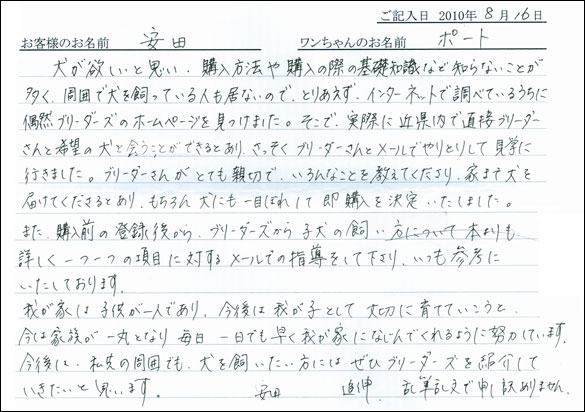 ご記入日 2010年 8月 16日
お客様のお名前 安田 ワンちゃんのお名前 ポート
犬が欲しいと思い、購入方法や購入の際の基礎知識など知らないことが
多く、周囲で犬を飼っている人も居ないので、とりあえず、インターネットで調べているうちに
偶然ブリーダーズのホームページを見つけました。そこで、実際に近県内で直接ブリーダー
さんと希望の犬と会うことができるとあり、さっそくブリーダーさんとメールでやりとりして見学に
行きました。ブリーダーさんがとても親切で、いろんなことを教えてくださり、家まで犬を
届けてくださるとあり、もちろん犬にも一目ぼれして即購入を決定いたしました。
また、購入前の登録後から、ブリーダーズから子犬の飼い方について本よりも
詳しく一つ一つの項目に対するメールでの指導をして下さり、いつも参考に
いたしております。
我が家は子供が一人であり、今後は我が子として大切に育てていこうと、
今は家族が一丸となり毎日一日でも早く我が家になじんでくれるように努力しています。
今後は、私共の周囲でも、犬を飼いたい方にはぜひブリーダーズを紹介して
いきたいと思います。 安田 追伸 乱筆乱文で申し訳ありません。